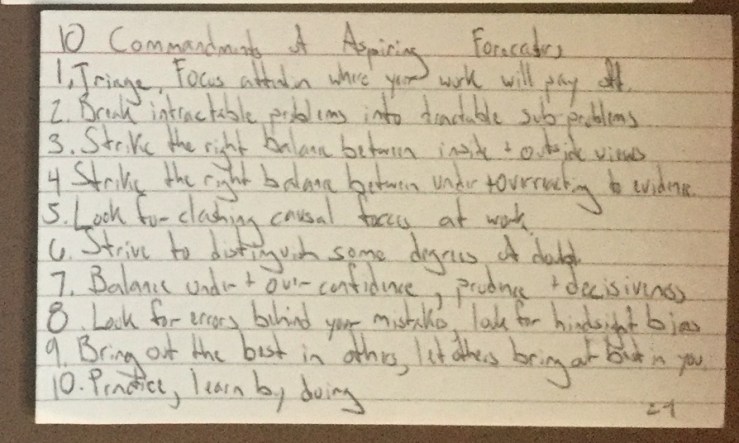 10 Commandments of Aspiring Forecasters
1. Triage, Focus attention where your work will pay off.
2. Break intractable problems into tractable sub-problems
3. Strike the right balance between inside + outside views
4 Strike the right balance between under + overreacting to evidence.
5. Look for clashing causal forces at work
6. Strive to distinguish some degrees of doubt.
7. Balance under + over-confidence, prudence + decisiveness
8. Look for errors behind your mistakes, look for hindsight bias
9. Bring out the best in others, let others bring out best in you.
10. Practice, learn by doing